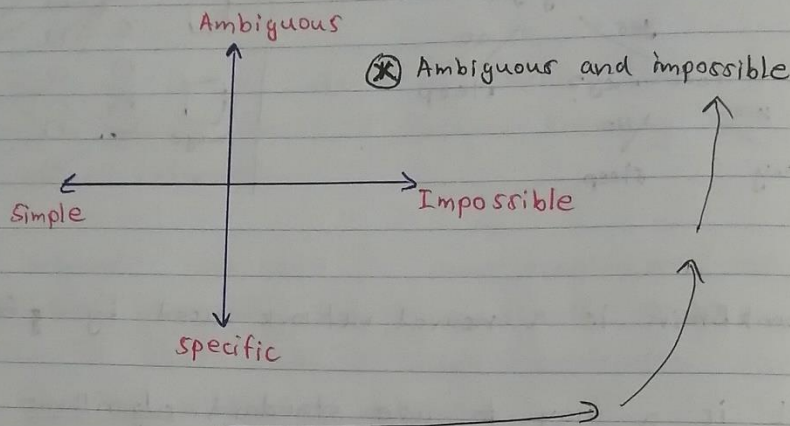 Ambiguous
Ⓧ Ambiguous and impossible
Simple
Impossible
specific